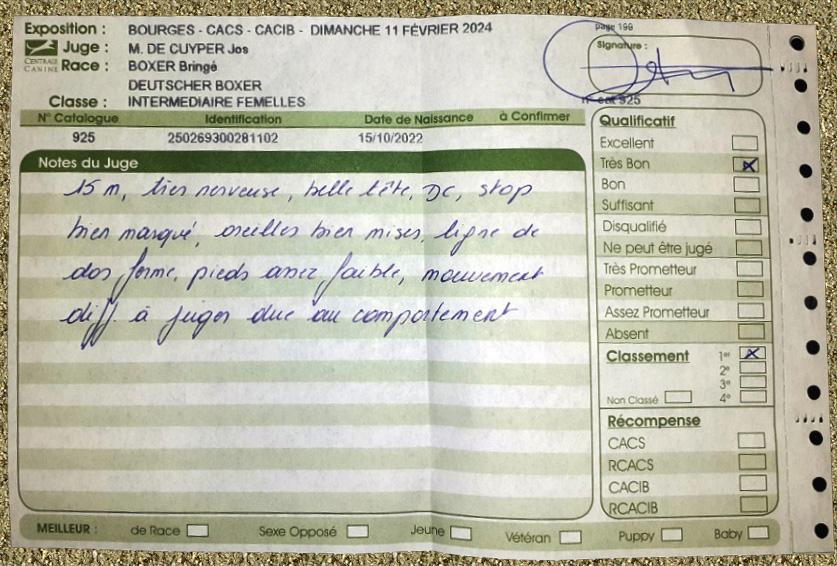 Exposition : BOURGES - CACS - CACIB - DIMANCHE 11 FÉVRIER 2024
page 199
CENTRALE CANINE
Juge : M. DE CUYPER Jos
Signature :
Race : BOXER Bringé
DEUTSCHER BOXER
Classe : INTERMEDIAIRE FEMELLES
n° cat 925
N° Catalogue Identification Date de Naissance à Confirmer
925 250269300281102 15/10/2022
Notes du Juge
15 m, tres nerveuse, belle tête, DC, stop
bien marqué, oreilles bien mises, ligne de
dos ferme, pieds assez faible, mouvement
diff. à juger due au comportement
Qualificatif
Excellent
Très Bon X
Bon
Suffisant
Disqualifié
Ne peut être jugé
Très Prometteur
Prometteur
Assez Prometteur
Absent
Classement 1er X
2e
3e
Non Classé 4e
Récompense
CACS
RCACS
CACIB
RCACIB
MEILLEUR : de Race Sexe Opposé Jeune Vétéran Puppy Baby